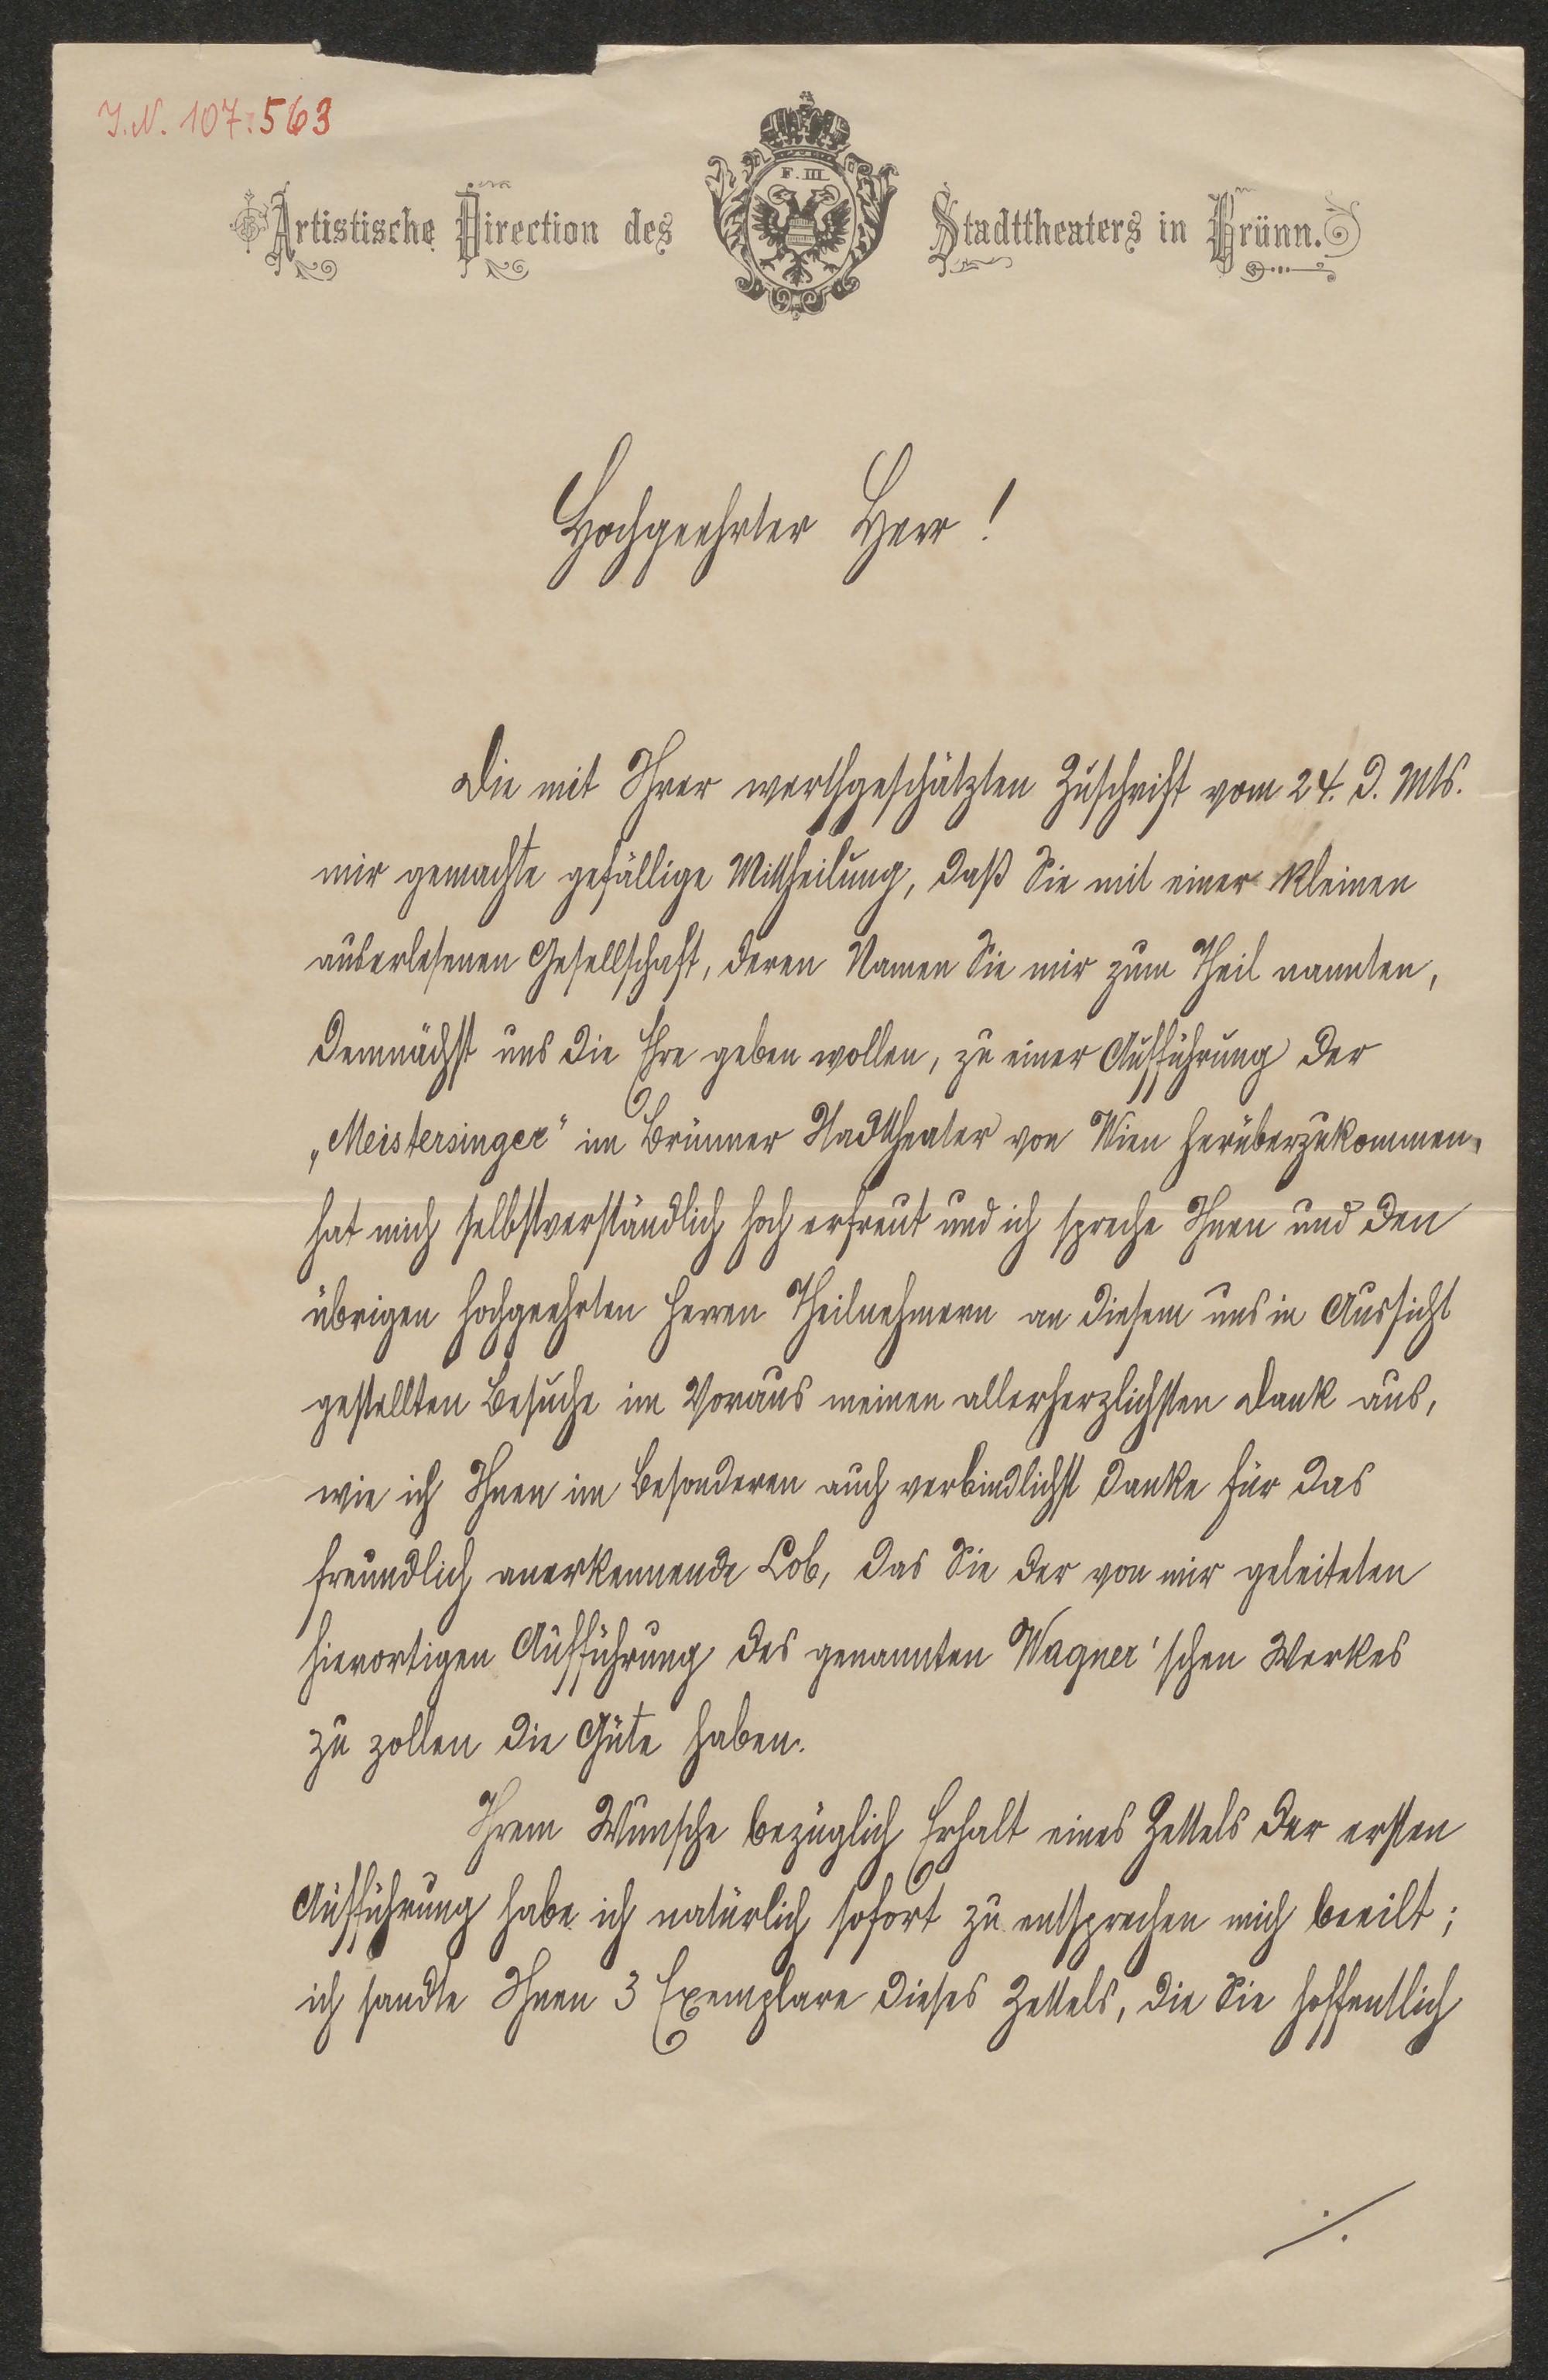 J.N. 107.563
F. III.
Artistische Direction des Stadttheaters in Brünn.
Hochgeehrter Herr!
Die mit Ihrer werthgeschätzten Zuschrift vom 24. d. Mts.
mir gemachte gefällige Mittheilung, daß Sie mit einer kleinen
auserlesenen Gesellschaft, deren Namen Sie mir zum Theil nannten,
demnächst uns die Ehre geben wollen, zu einer Aufführung der
„Meistersinger" im Brünner Stadttheater von Wien herüberzukommen,
hat mich selbstverständlich hoch erfreut und ich spreche Ihnen und den
übrigen hochgeehrten Herren Theilnehmern an diesem uns in Aussicht
gestellten Besuche im Voraus meinen allerherzlichsten Dank aus,
wie ich Ihnen im Besonderen auch verbindlichst danke für das
freundlich anerkennende Lob, das Sie der von mir geleiteten
hierortigen Aufführung des genannten Wagner'schen Werkes
zu zollen die Güte haben.
Ihrem Wunsche bezüglich Erhalt eines Zettels der ersten
Aufführung habe ich natürlich sofort zu entsprechen mich beeilt;
ich sandte Ihnen 3 Exemplare dieses Zettels, die Sie hoffentlich
./.